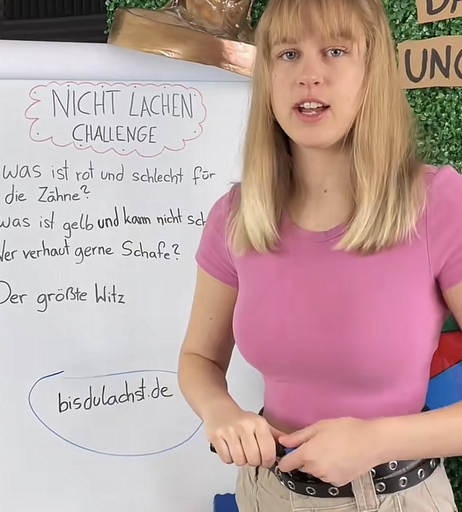 NICHT LACHEN
CHALLENGE
was ist rot und schlecht für
die Zähne?
was ist gelb und kann nicht sch
Wer verhaut gerne Schafe?
Der größte Witz
bisdulachst.de
UNG